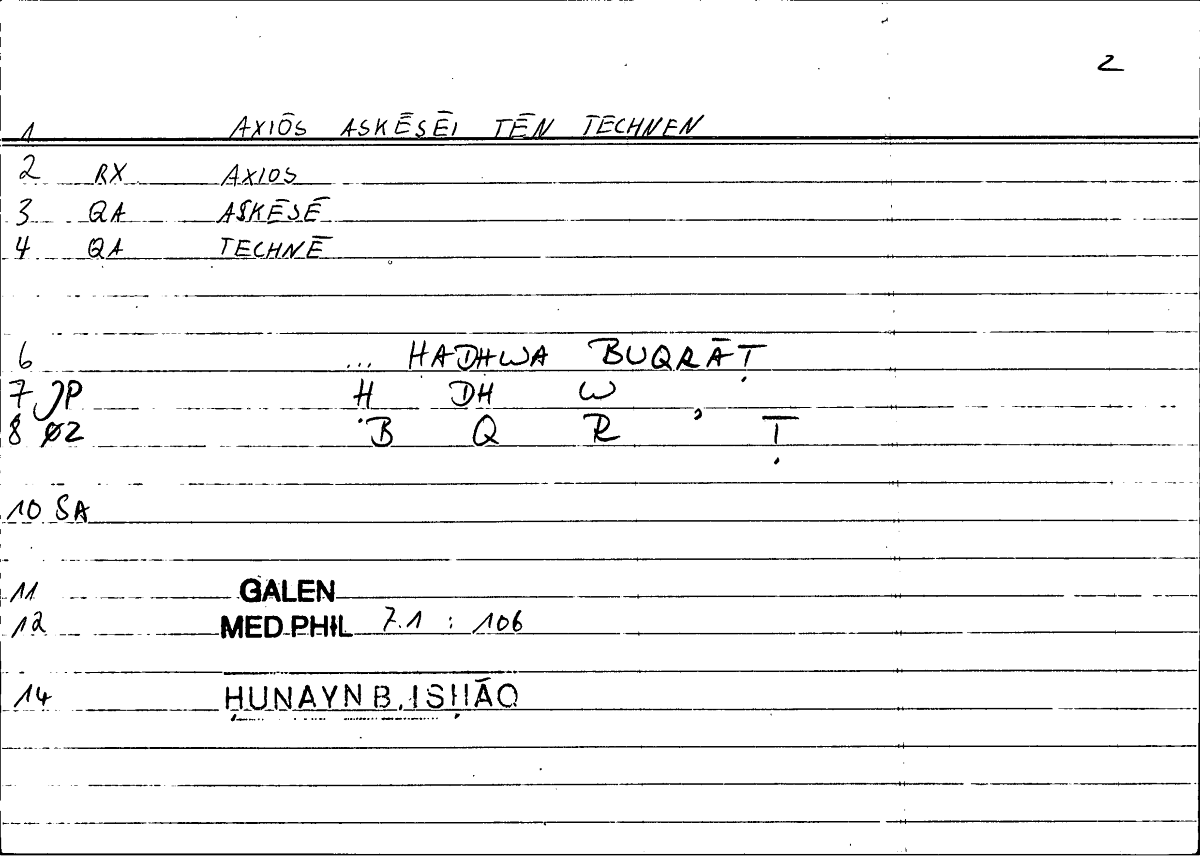 2
1 AXIŌS ASKĒSĒI TĒN TECHNEN
2 RX AXIOS
3 QA ASKĒSĒ
4 QA TECHNĒ
6 ... HADHWA BUQRĀṬ
7 JP H DH W
8 ØZ B Q R , Ṭ
10 SA
11 GALEN
12 MED PHIL 7.1 : 106
14 ḤUNAYN B. ISḤĀQ